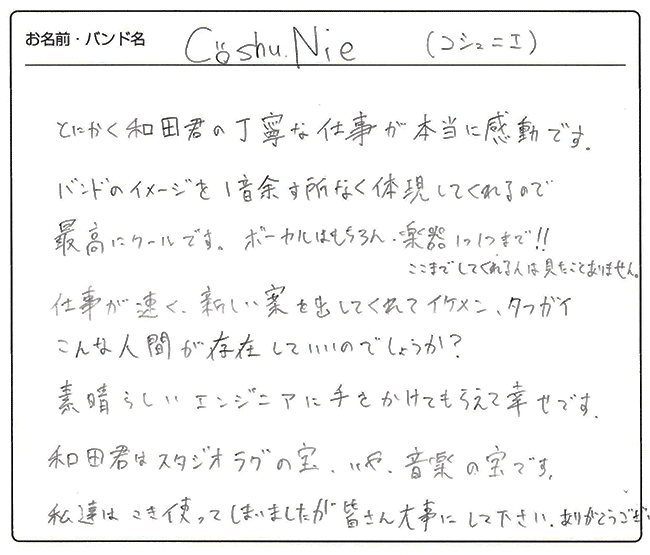 お名前・バンド名 Cö shu Nie (コシュニエ)
とにかく和田君の丁寧な仕事が本当に感動です。
バンドのイメージを1音余す所なく体現してくれるので
最高にクールです。ボーカルはもちろん、楽器1つ1つまで!!
ここまでしてくれる人は見たことありません。
仕事が速く、新しい案を出してくれてイケメン、タフガイ
こんな人間が存在していいのでしょうか?
素晴らしいエンジニアに手をかけてもらえて幸せです。
和田君はスタジオラグの宝、いや、音楽の宝です。
私達はこき使ってしまいましたが皆さん大事にして下さい。ありがとうござい